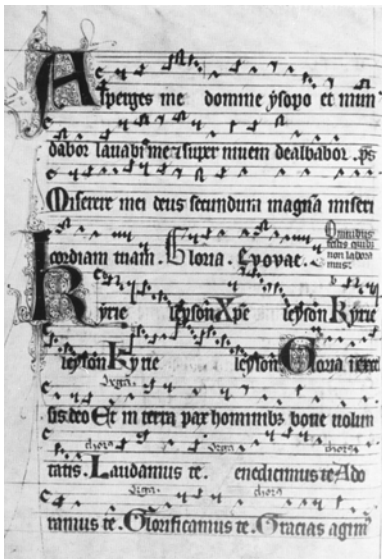 Asperges me domine ysopo et mun
dabor lauabis me et super niuem dealbabor. ps
Miserere mei deus secundum magnā miseri
cordiam tuam. Gloria. Euouae. Omnibus
non labora
mus.
Kyrie leyson Xpe leyson Kyrie
leyson Kyrie leyson Gloria in excel
sis deo Et in terra pax hominibꝫ bone uolun
chorꝰ chorꝰ
tatis. Laudamus te. enedicimus te Ado
ramus te. Glorificamus te. Gracias agimꝰ